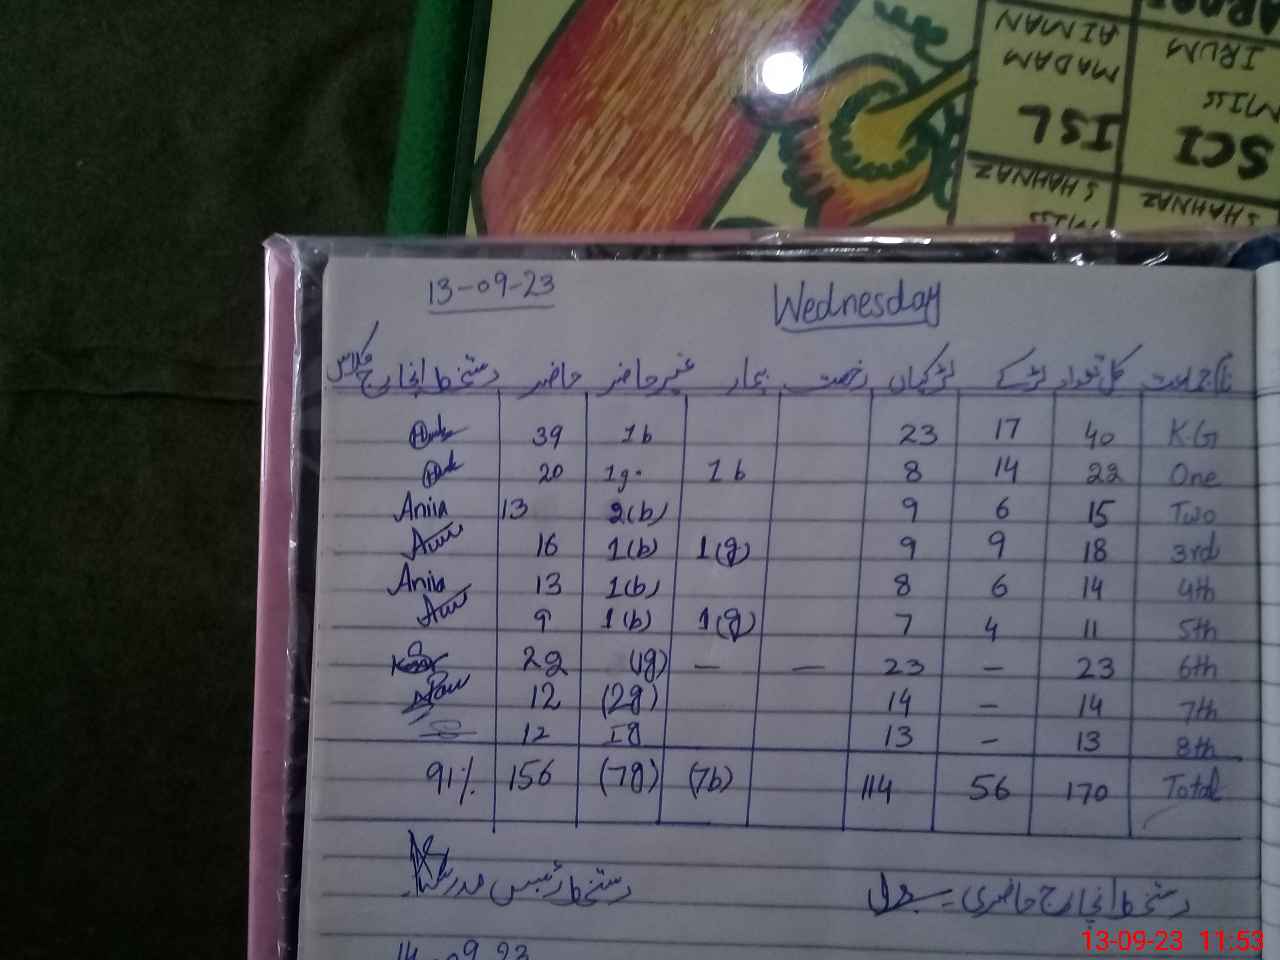 AIMAN
MADAM
ISL
SHAHNAZ
MISS
IRUM
MISS
SCI
SHAHNAZ
13-09-23 Wednesday
نام جماعت کل تعداد لڑکے لڑکیاں رخصت بیمار غیر حاضر حاضر دستخط انچارج کلاس
K.G 40 17 23 1b 39
One 22 14 8 1b 1g. 20
Two 15 6 9 2(b) 13 Anila
3rd 18 9 9 1(g) 1(b) 16
4th 14 6 8 1(b) 13 Anila
5th 11 4 7 1(g) 1(b) 9
6th 23 – 23 — — (1g) 22
7th 14 – 14 (2g) 12
8th 13 – 13 1g 12
Total 170 56 114 (7b) (7g) 156 91%
دستخط انچارج حاضری = دستخط رئیس مدرسہ
14-09-23
13-09-23 11:53